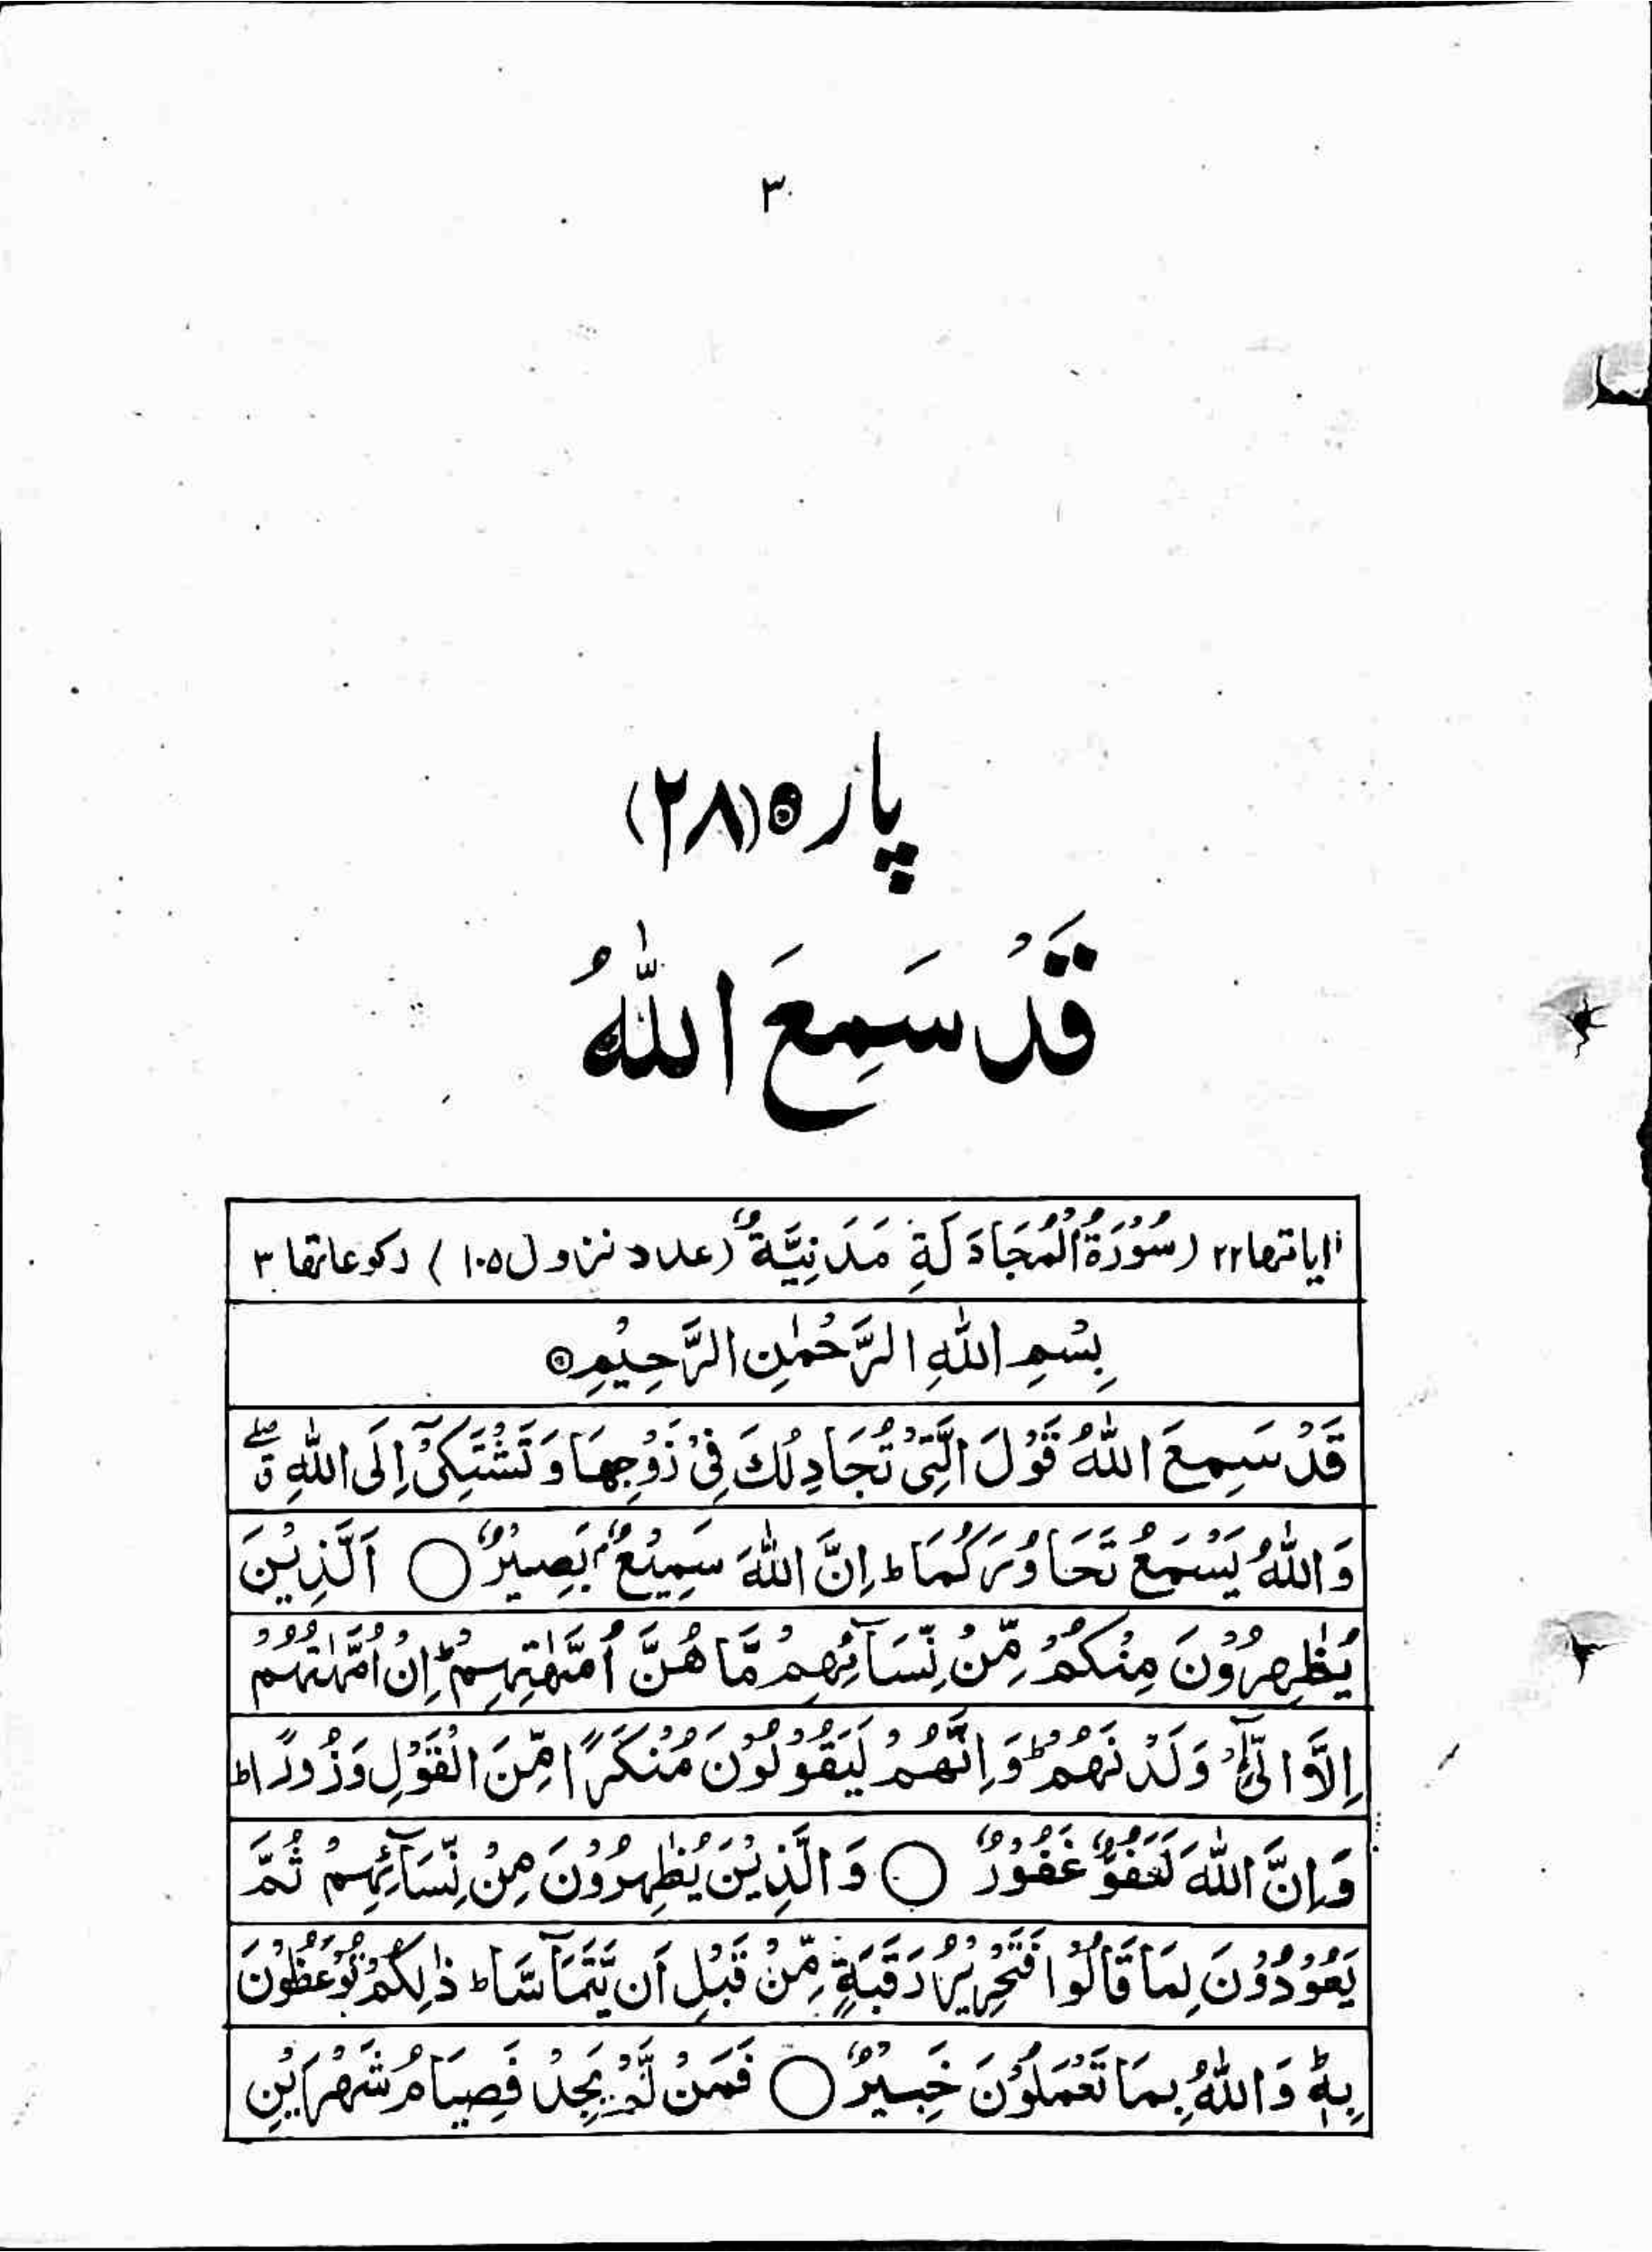 ۳
پارہ (۲۸)
قَدْ سَمِعَ اللّٰهُ
اٰیاتها ۲۲ (سُوْرَةُ الْمُجَادَلَةِ مَدَنِيَّةٌ) (عدد نزول ۱۰۵) رکوعاتها ۳
بِسْمِ اللّٰهِ الرَّحْمٰنِ الرَّحِيْمِ
قَدْ سَمِعَ اللّٰهُ قَوْلَ الَّتِیْ تُجَادِلُكَ فِیْ زَوْجِهَا وَ تَشْتَكِیْۤ اِلَى اللّٰهِ ۖق
وَ اللّٰهُ یَسْمَعُ تَحَاوُرَكُمَا ؕ اِنَّ اللّٰهَ سَمِیْعٌۢ بَصِیْرٌ ○ اَلَّذِیْنَ
یُظٰهِرُوْنَ مِنْكُمْ مِّنْ نِّسَآئِهِمْ مَّا هُنَّ اُمَّهٰتِهِمْ ؕ اِنْ اُمَّهٰتُهُمْ
اِلَّا الّٰٓـِٔیْ وَلَدْنَهُمْ ؕ وَ اِنَّهُمْ لَیَقُوْلُوْنَ مُنْكَرًا مِّنَ الْقَوْلِ وَ زُوْرًا ؕ
وَ اِنَّ اللّٰهَ لَعَفُوٌّ غَفُوْرٌ ○ وَ الَّذِیْنَ یُظٰهِرُوْنَ مِنْ نِّسَآئِهِمْ ثُمَّ
یَعُوْدُوْنَ لِمَا قَالُوْا فَتَحْرِیْرُ رَقَبَةٍ مِّنْ قَبْلِ اَنْ یَّتَمَآسَّا ؕ ذٰلِكُمْ تُوْعَظُوْنَ
بِهٖ ؕ وَ اللّٰهُ بِمَا تَعْمَلُوْنَ خَبِیْرٌ ○ فَمَنْ لَّمْ یَجِدْ فَصِیَامُ شَهْرَیْنِ